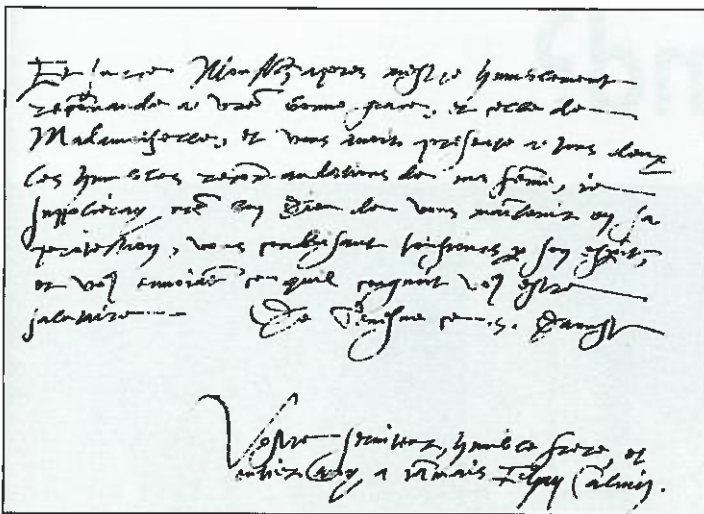 Et sur ce Monsr, apres m'estre humblement
recõmande a vrẽ bonne grace, et celle de
Madamoiselle, et vous avoir presente a tous deux
les humbles recõmandations de ma fẽme, je
supplieray nrẽ bon Dieu de vous maintenir en sa
protection, vous conduisant tousiours par son esprit,
et vous envoiãt ce quil congnoit vous estre
salutaire De Genesve ce 15. d'aoust
Vostre serviteur, humble frere, et
entier amy a iamais Calvin.
nd?